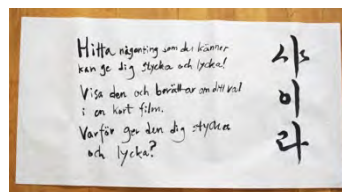 Hitta någonting som du känner
kan ge dig styrka och lycka!
Visa den och berättar om ditt val
i en kort film.
Varför ger den dig styrka
och lycka?
사
이
라